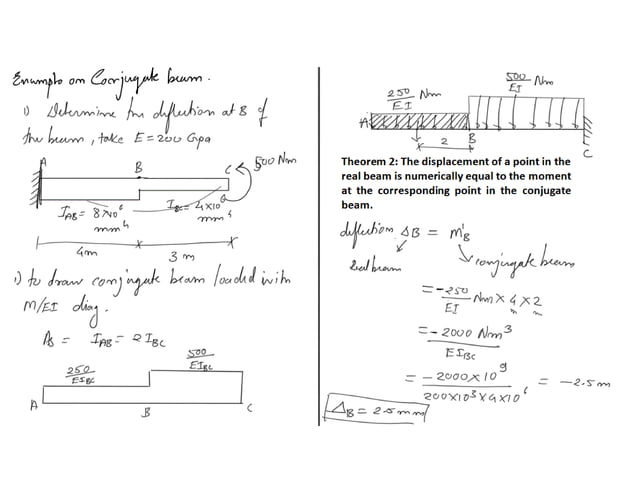 Example on Conjugate beam.
1) Determine the deflection at B of
the beam, take E = 200 Gpa
A
B
C
500 Nm
I_AB = 8×10⁶
mm⁴
I_BC = 4×10⁶
mm⁴
4m
3 m
1) to draw conjugate beam loaded with
M/EI diag.
As = I_AB = 2 I_BC
250/EI_BC
500/EI_BC
A
B
C
250/EI Nm
500/EI Nm
A
2
B
C
Theorem 2: The displacement of a point in the
real beam is numerically equal to the moment
at the corresponding point in the conjugate
beam.
deflection ΔB = M'B
real beam
conjugate beam
= -250/EI Nm × 4 × 2
m m
= -2000 Nm³/EI_BC
= -2000×10⁹/200×10³×4×10⁶ = -2.5m
Δ_B = 2.5 mm